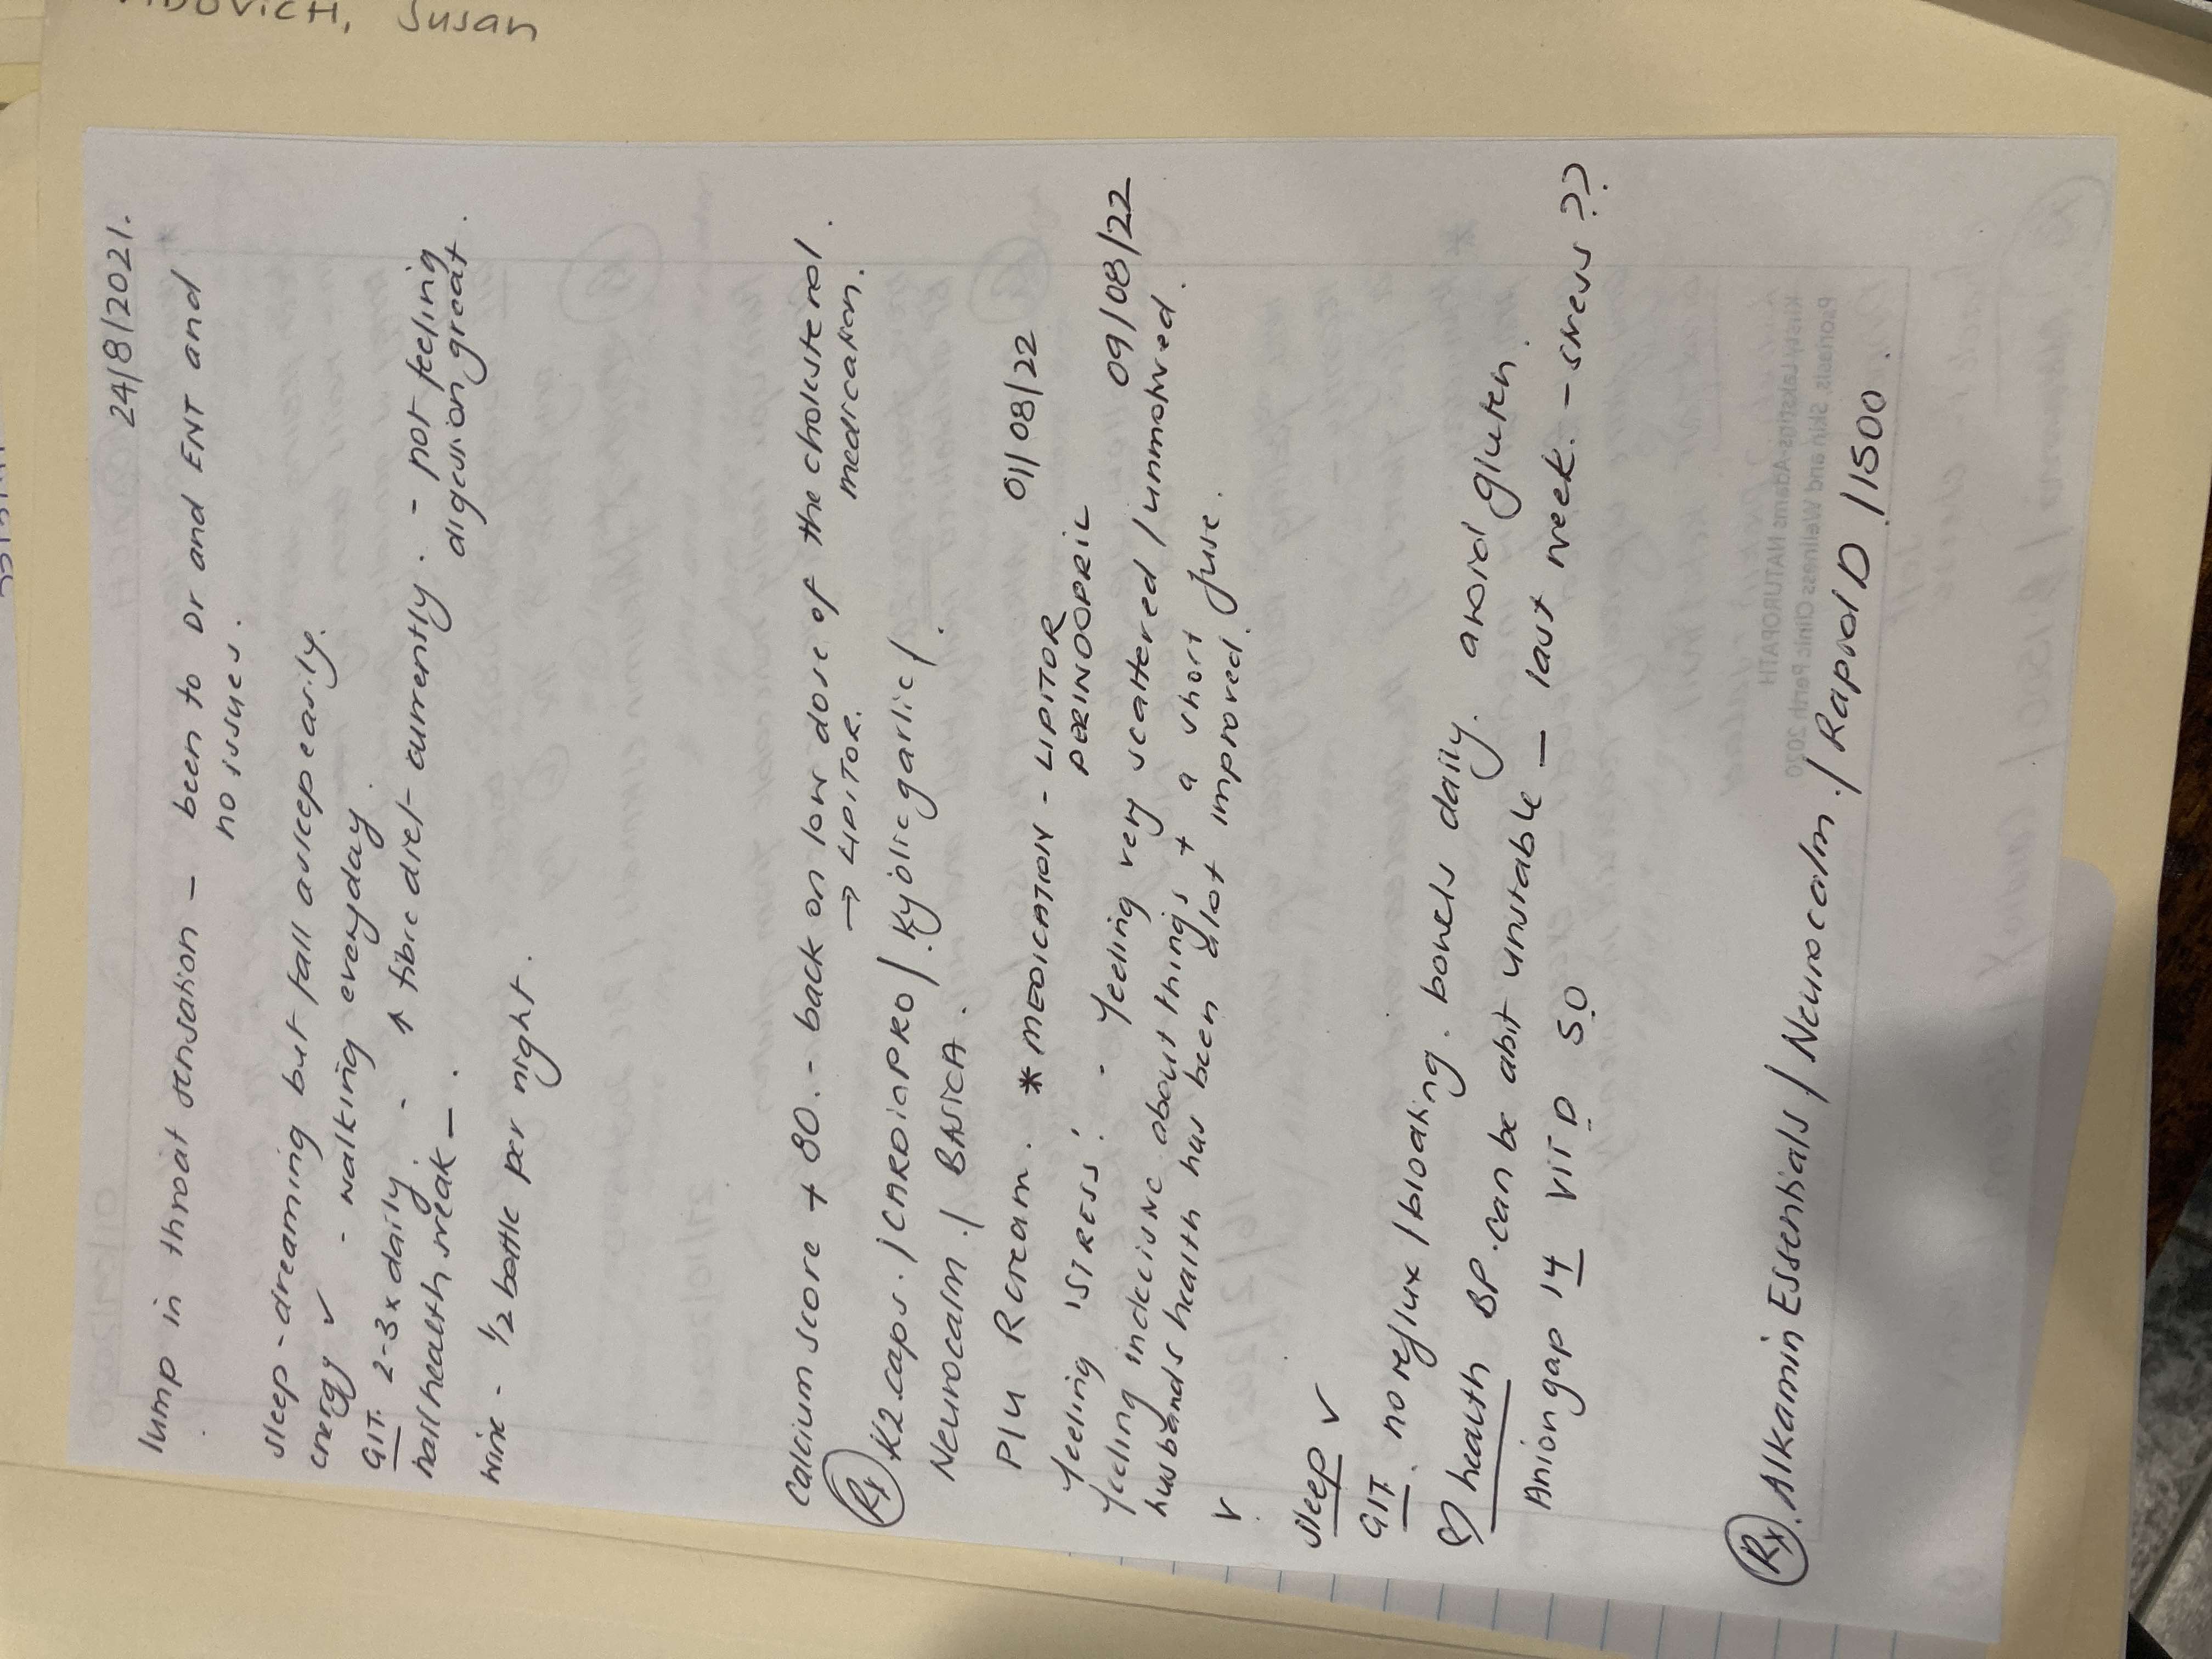 Susan
24/8/2021.
lump in throat sensation - been to Dr and ENT and
no issues.
sleep - dreaming but fall asleep easily.
energy ✓ - walking everyday.
GIT. 2-3x daily. - ↑ fibre diet currently. - not feeling
digestion great.
nail health weak _.
wine - 1/2 bottle per night.
calcium score + 80. - back on low dose of the cholesterol.
→ LIPITOR. medication.
Rx K2 caps. / CARDIAPRO / Kyolic garlic /.
Neurocalm. / BASICA.
PIU R cream. * MEDICATION - LIPITOR 01/08/22
PERINDOPRIL
09/08/22
feeling 'STRESS'. - feeling very scattered / unmotived.
feeling indecisive about things + a short fuse.
husbands health has been alot improved.
✓
sleep ✓
GIT. no reflux / bloating. bowels daily. avoid gluten.
♡ health BP. can be abit unstable _ last week. - stress??
Anion gap 14 VIT D 50
Rx. Alkamin Essentials / Neurocalm. / Rapid D / 1500.
Psoriasis, Skin and Wellness Clinic Perth 2020
Kirsty Lakstigs-Adams NATUROPATH